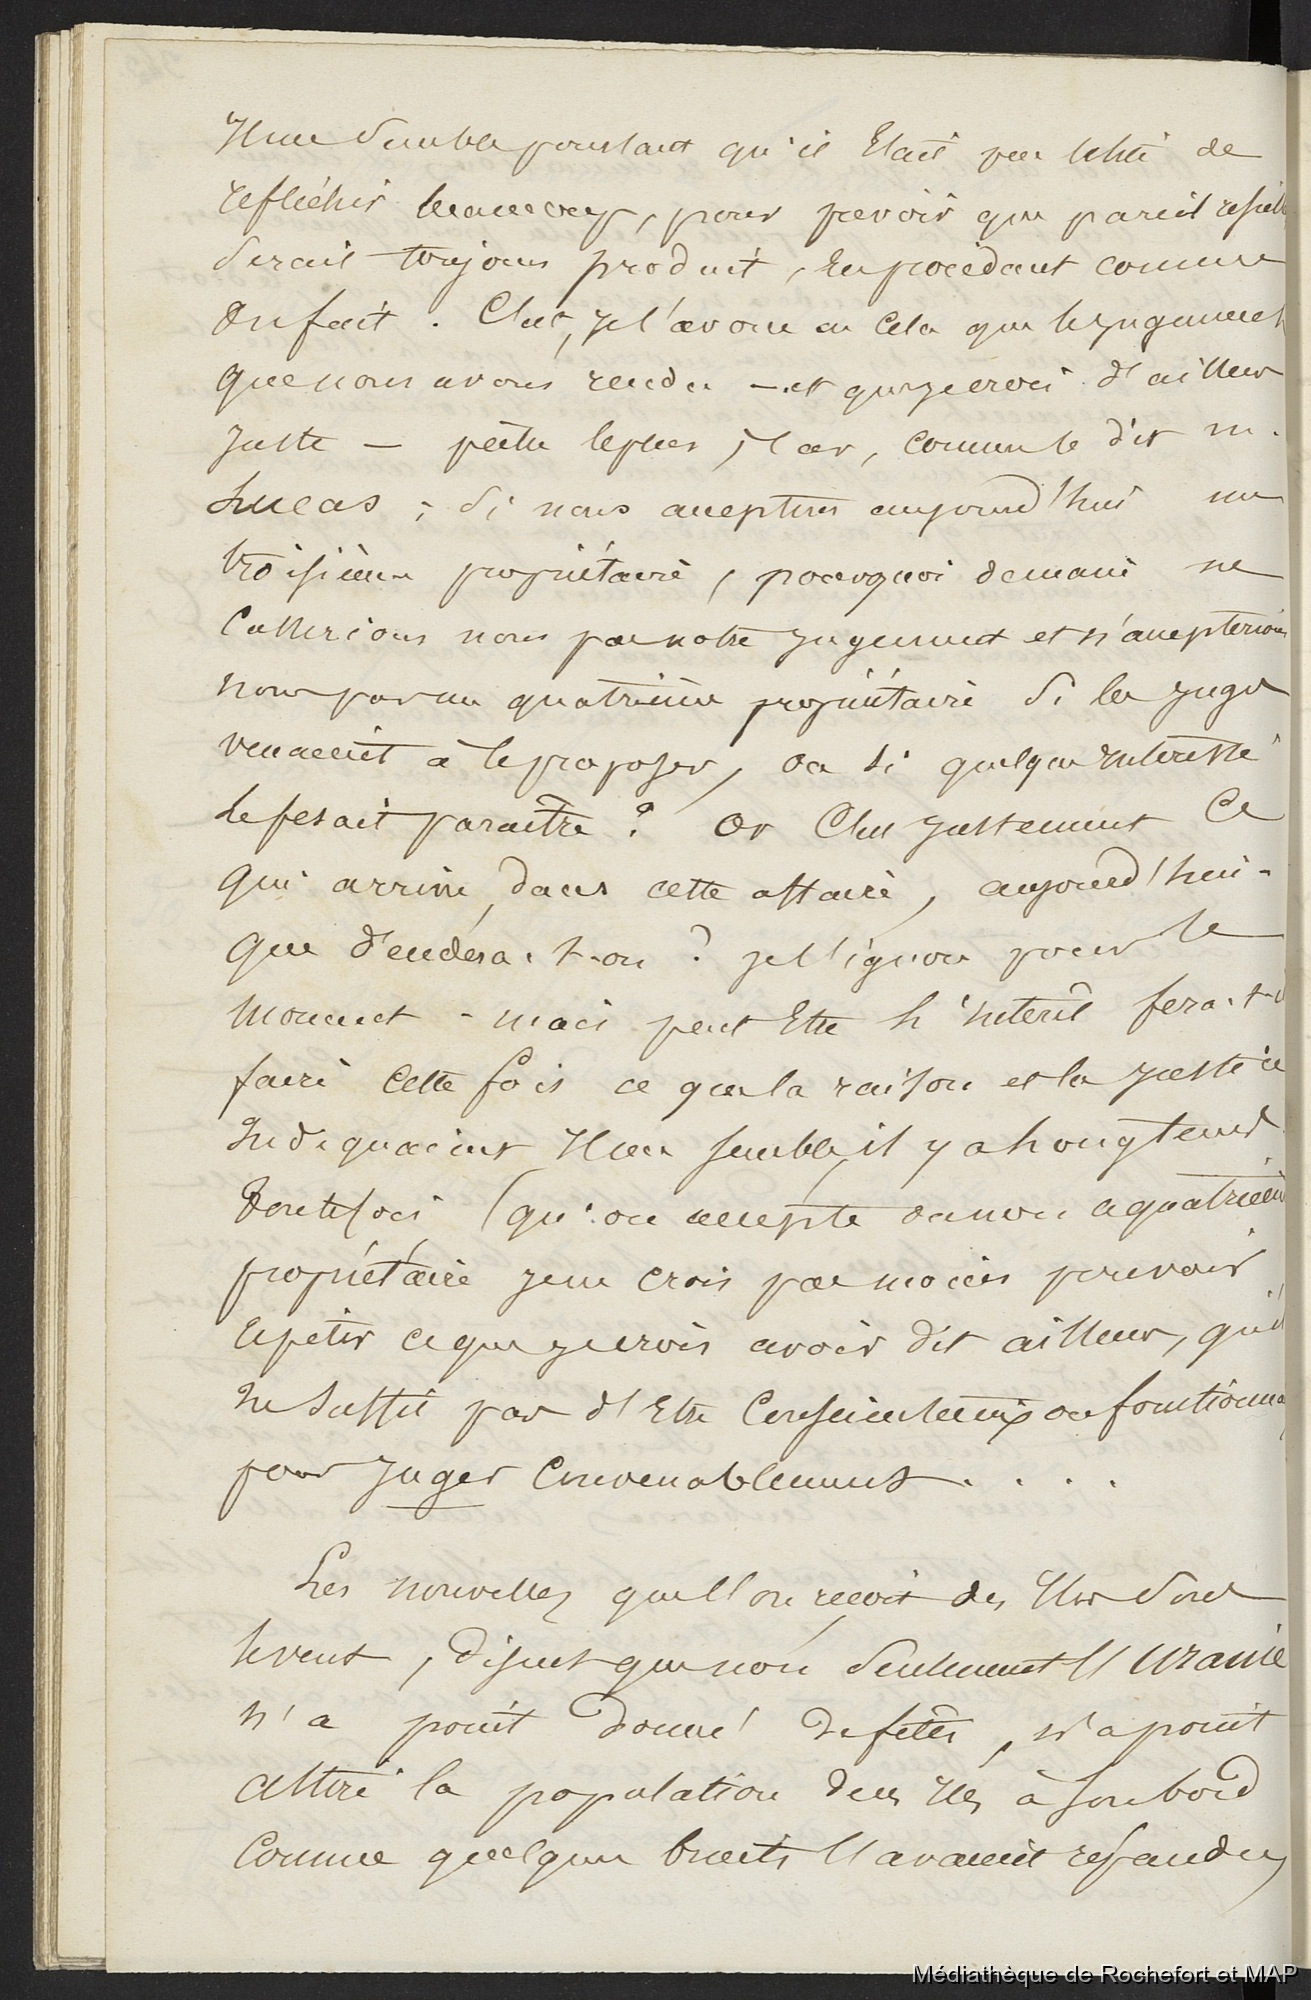 Il me semble pourtant qu'il était peu utile de
réfléchir beaucoup, pour prévoir que pareil
serait toujours produit, en procédant comme
on fait. C'est, je l'avoue en cela que le jugement
que nous avons rendu — et que je crois d'ailleur
juste — pèche le plus, car, comme le dit m.
Lucas, si nous acceptons aujourd'hui un
troisième propriétaire, pourquoi demain ne
casserions nous pas notre jugement et n'accepterions
nous pas un quatrième propriétaire si les juges
venaient à le proposer, ou si quelque intéressé
le fesait paraître ? Or c'est justement ce
qui arrive, dans cette affaire, aujourd'hui.
Que décidera-t-on ? je l'ignore pour le
moment - mais peut être l'intérêt fera-t-il
faire cette fois ce que la raison et la justice
indiquaient il me semble, il y a longtems.
Toutefois (qu'on accepte ou non ce quatrième
propriétaire je ne crois pas moins pouvoir
répéter ce que je crois avoir dit ailleur, qu'il
ne suffit pas d'être consciencieux ou
pour juger convenablement . . . .
Les nouvelles que l'on reçoit des Iles sous
le vent, disent que non seulement l'Uranie
n'a point donné de fêtes, n'a point
attiré la population des Iles à son bord
comme quelques bruits l'avaient répandu,
Médiathèque de Rochefort et MAP